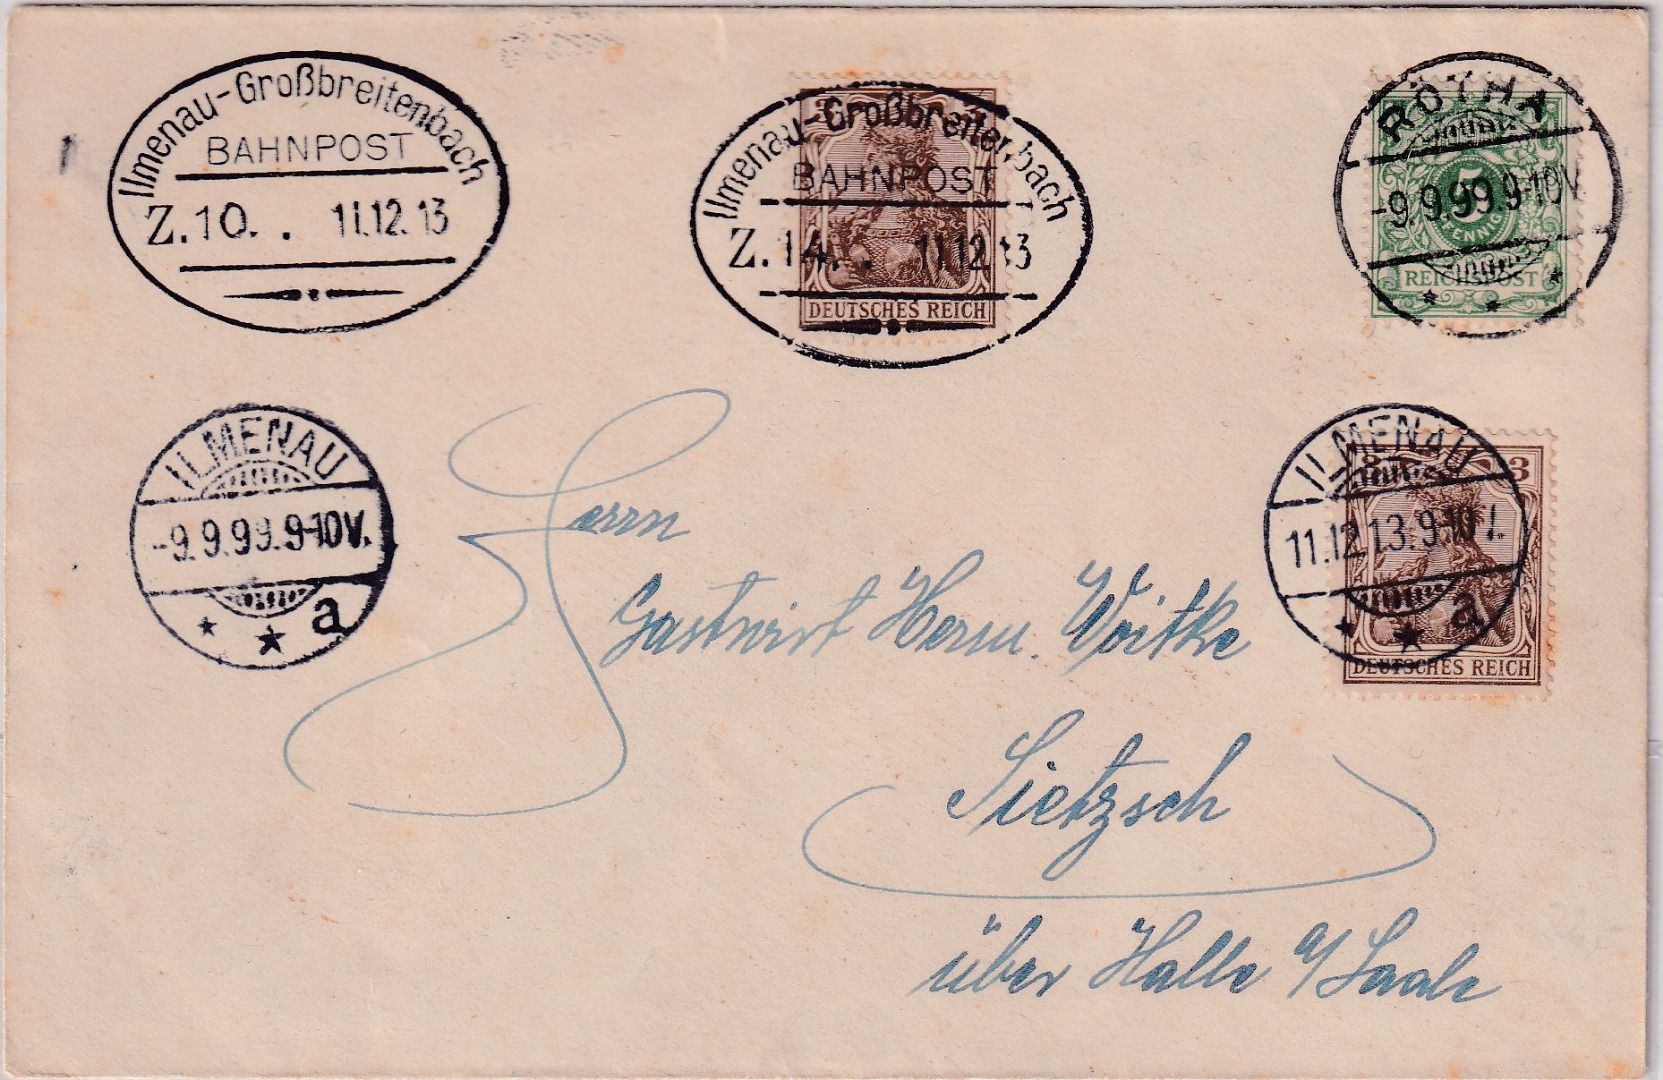 Ilmenau-Großbreitenbach
BAHNPOST
Z.10. . 11.12.13
Ilmenau-Großbreitenbach
BAHNPOST
Z.14. . 11.12.13
DEUTSCHES REICH
RÖTHA
-9.9.99.9-10V.
5
PFENNIG
REICHSPOST
ILMENAU
-9.9.99.9-10V.
a
ILMENAU
11.12.13.9-10
a
3 3
DEUTSCHES REICH
Herrn
Gastwirt Herm. Woitke
Sietzsch
über Halle a/Saale